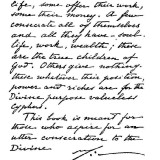 life, some offer their work,
some their money. A few
consecrate all of themselves
and all they have – soul,
life, work, wealth; these
are the true children of
God. Others give nothing,
these whatever their position,
power and riches are for the
Divine purpose valueless
cyphers.
This book is meant for
those who aspire for an
utter consecration to the
Divine.